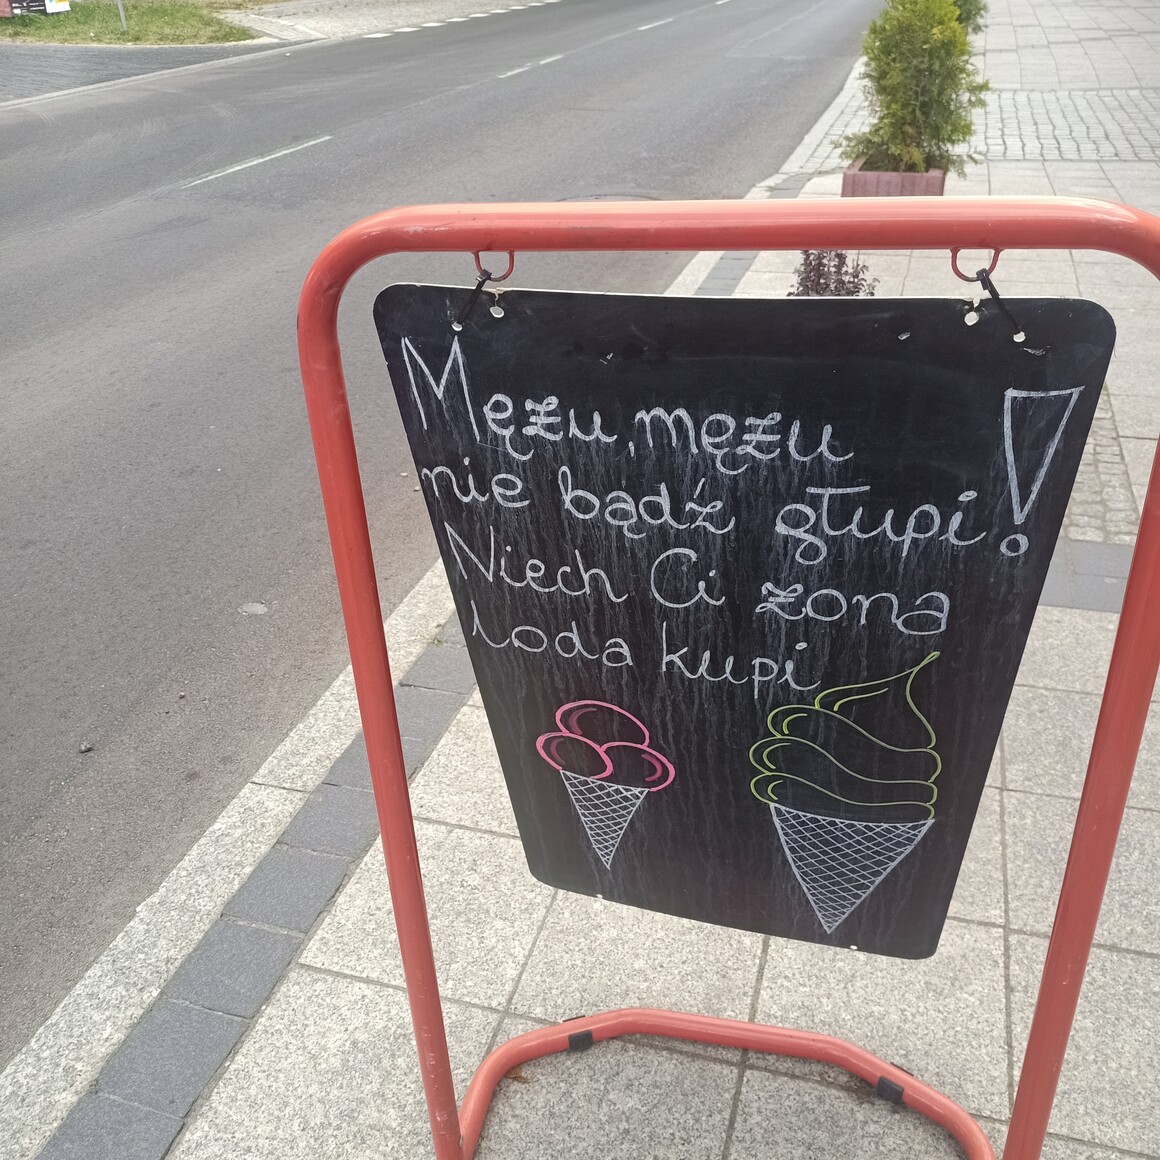 Mężu, mężu
nie bądź głupi!
Niech Ci żona
loda kupi